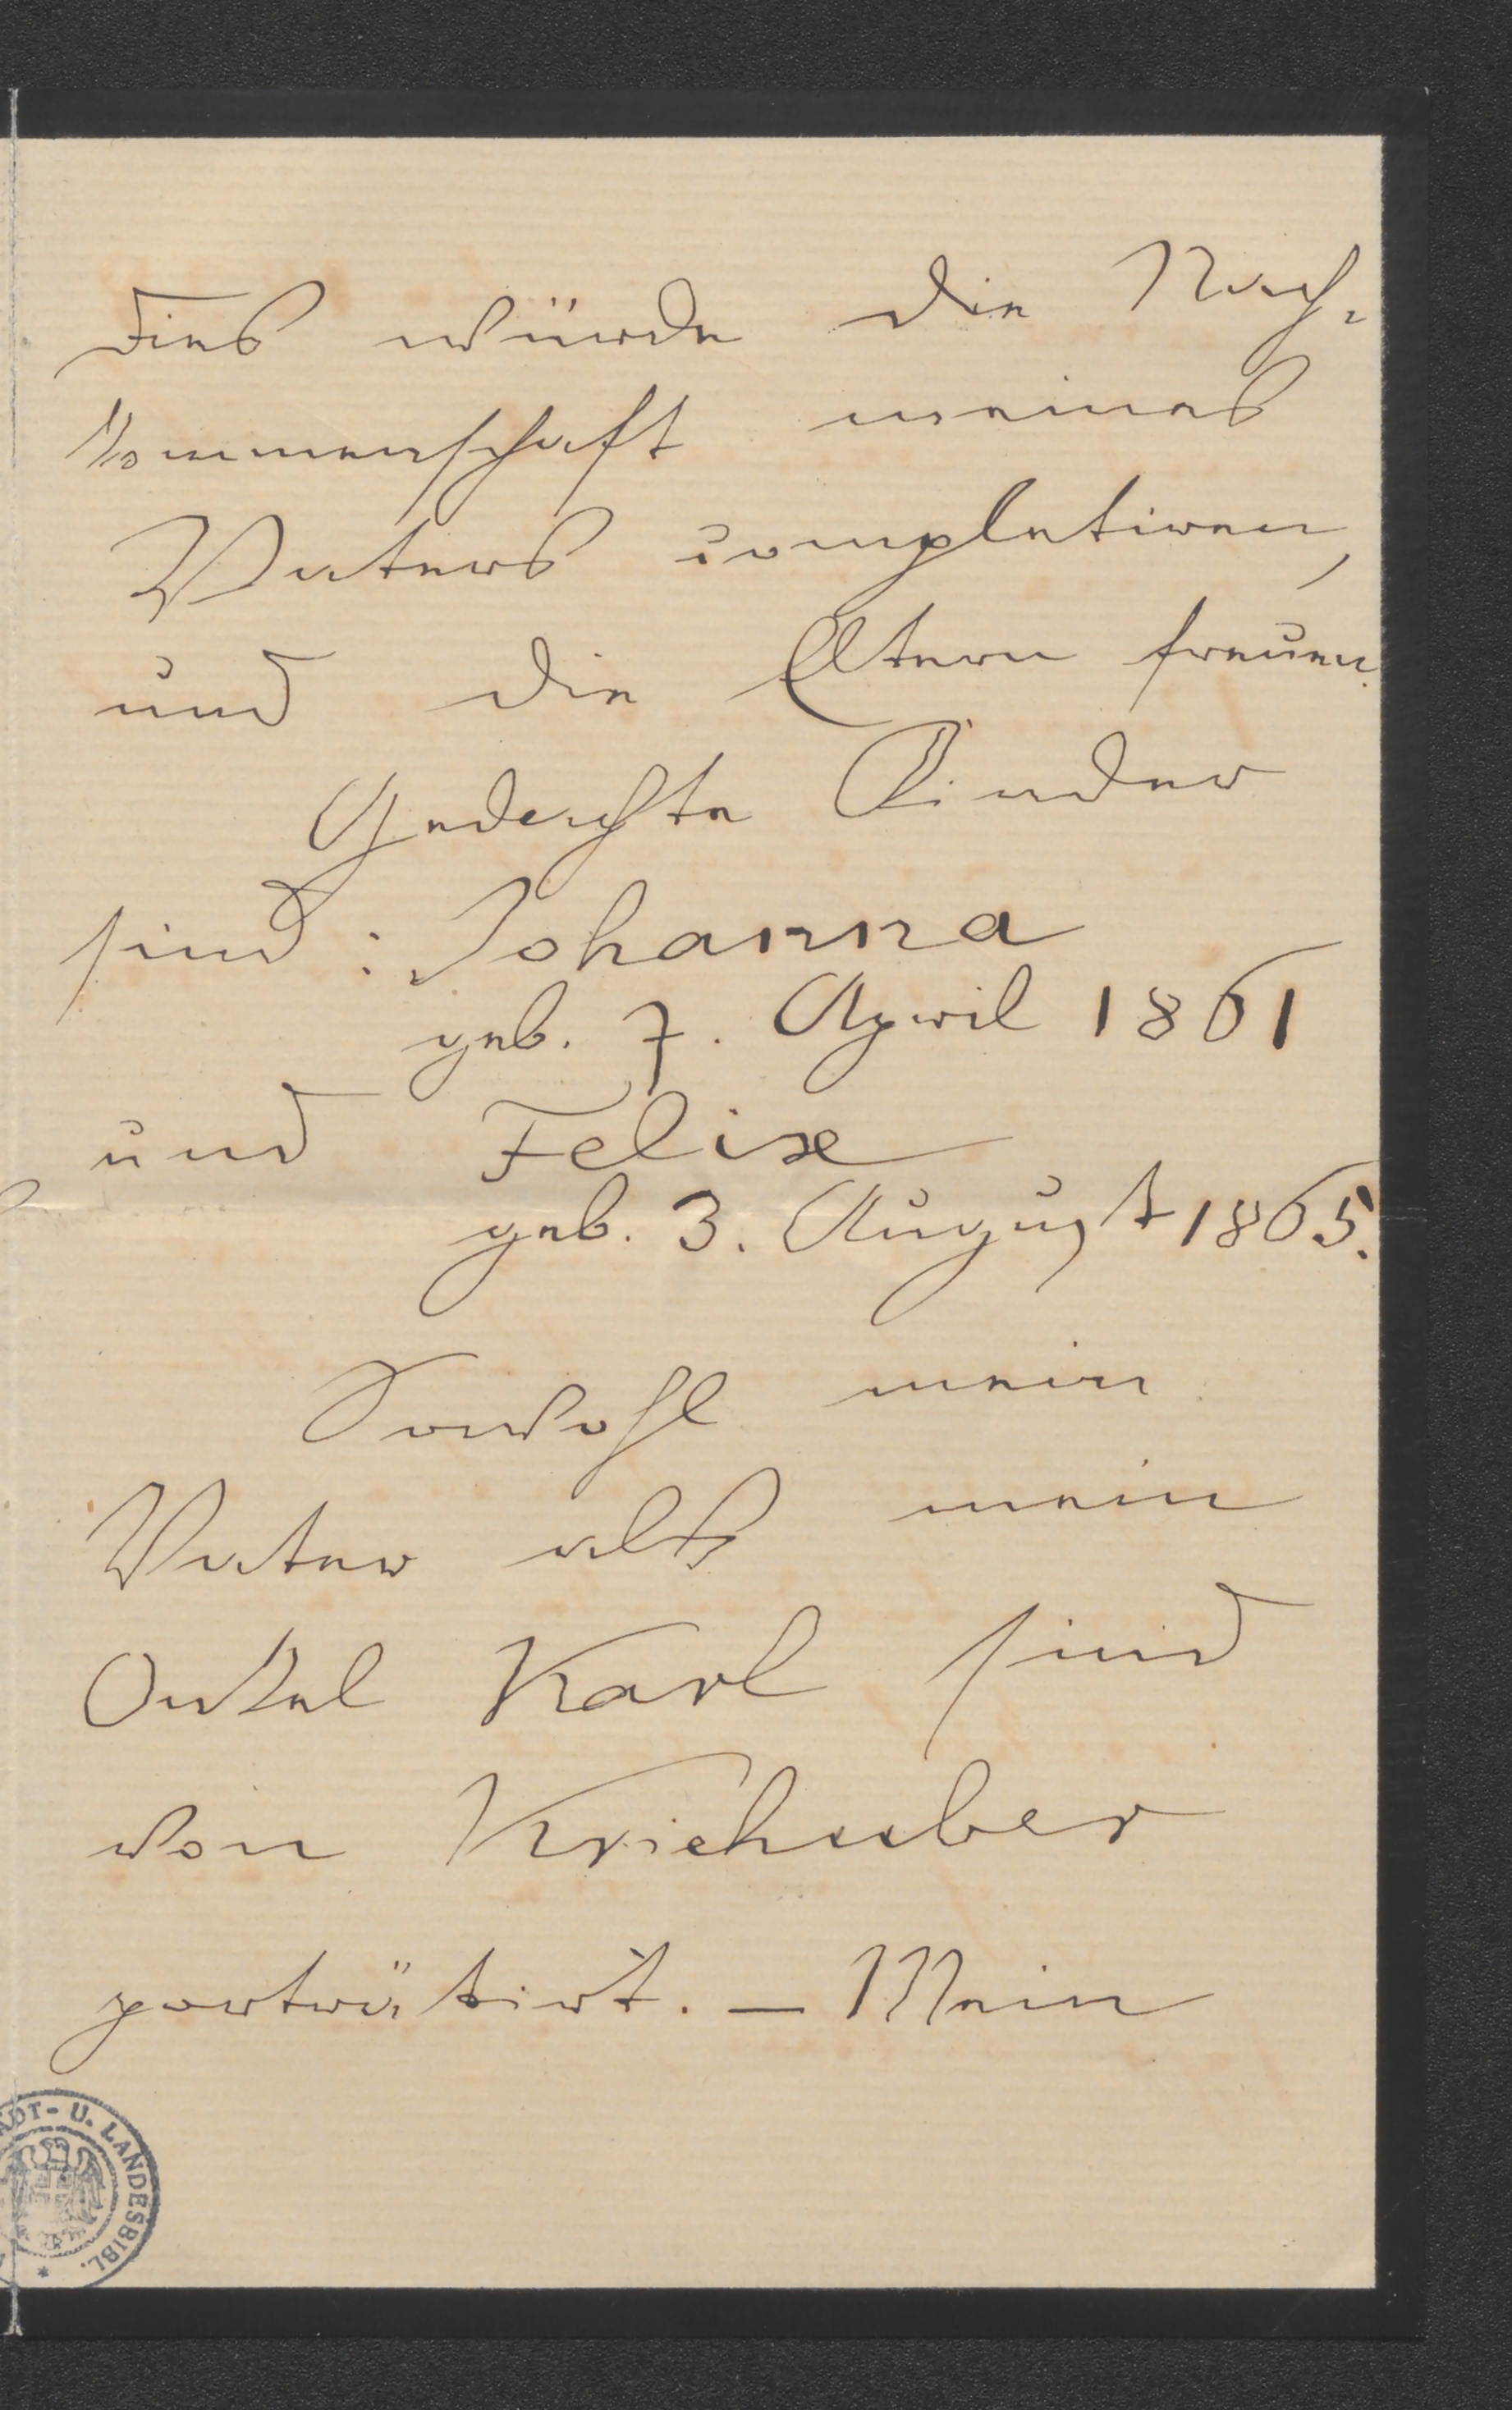 Dies würde die Nach-
kommenschaft meines
Vaters completiren,
und die Eltern freuen.
Gedachte Kinder
sind: Johanna
geb. 7. April 1861
und Felix
geb. 3. August 1865.
Sowohl mein
Vater als mein
Onkel Karl sind
von Kriehuber
porträtirt. — Mein
ADT- U. LANDESBIBL. *